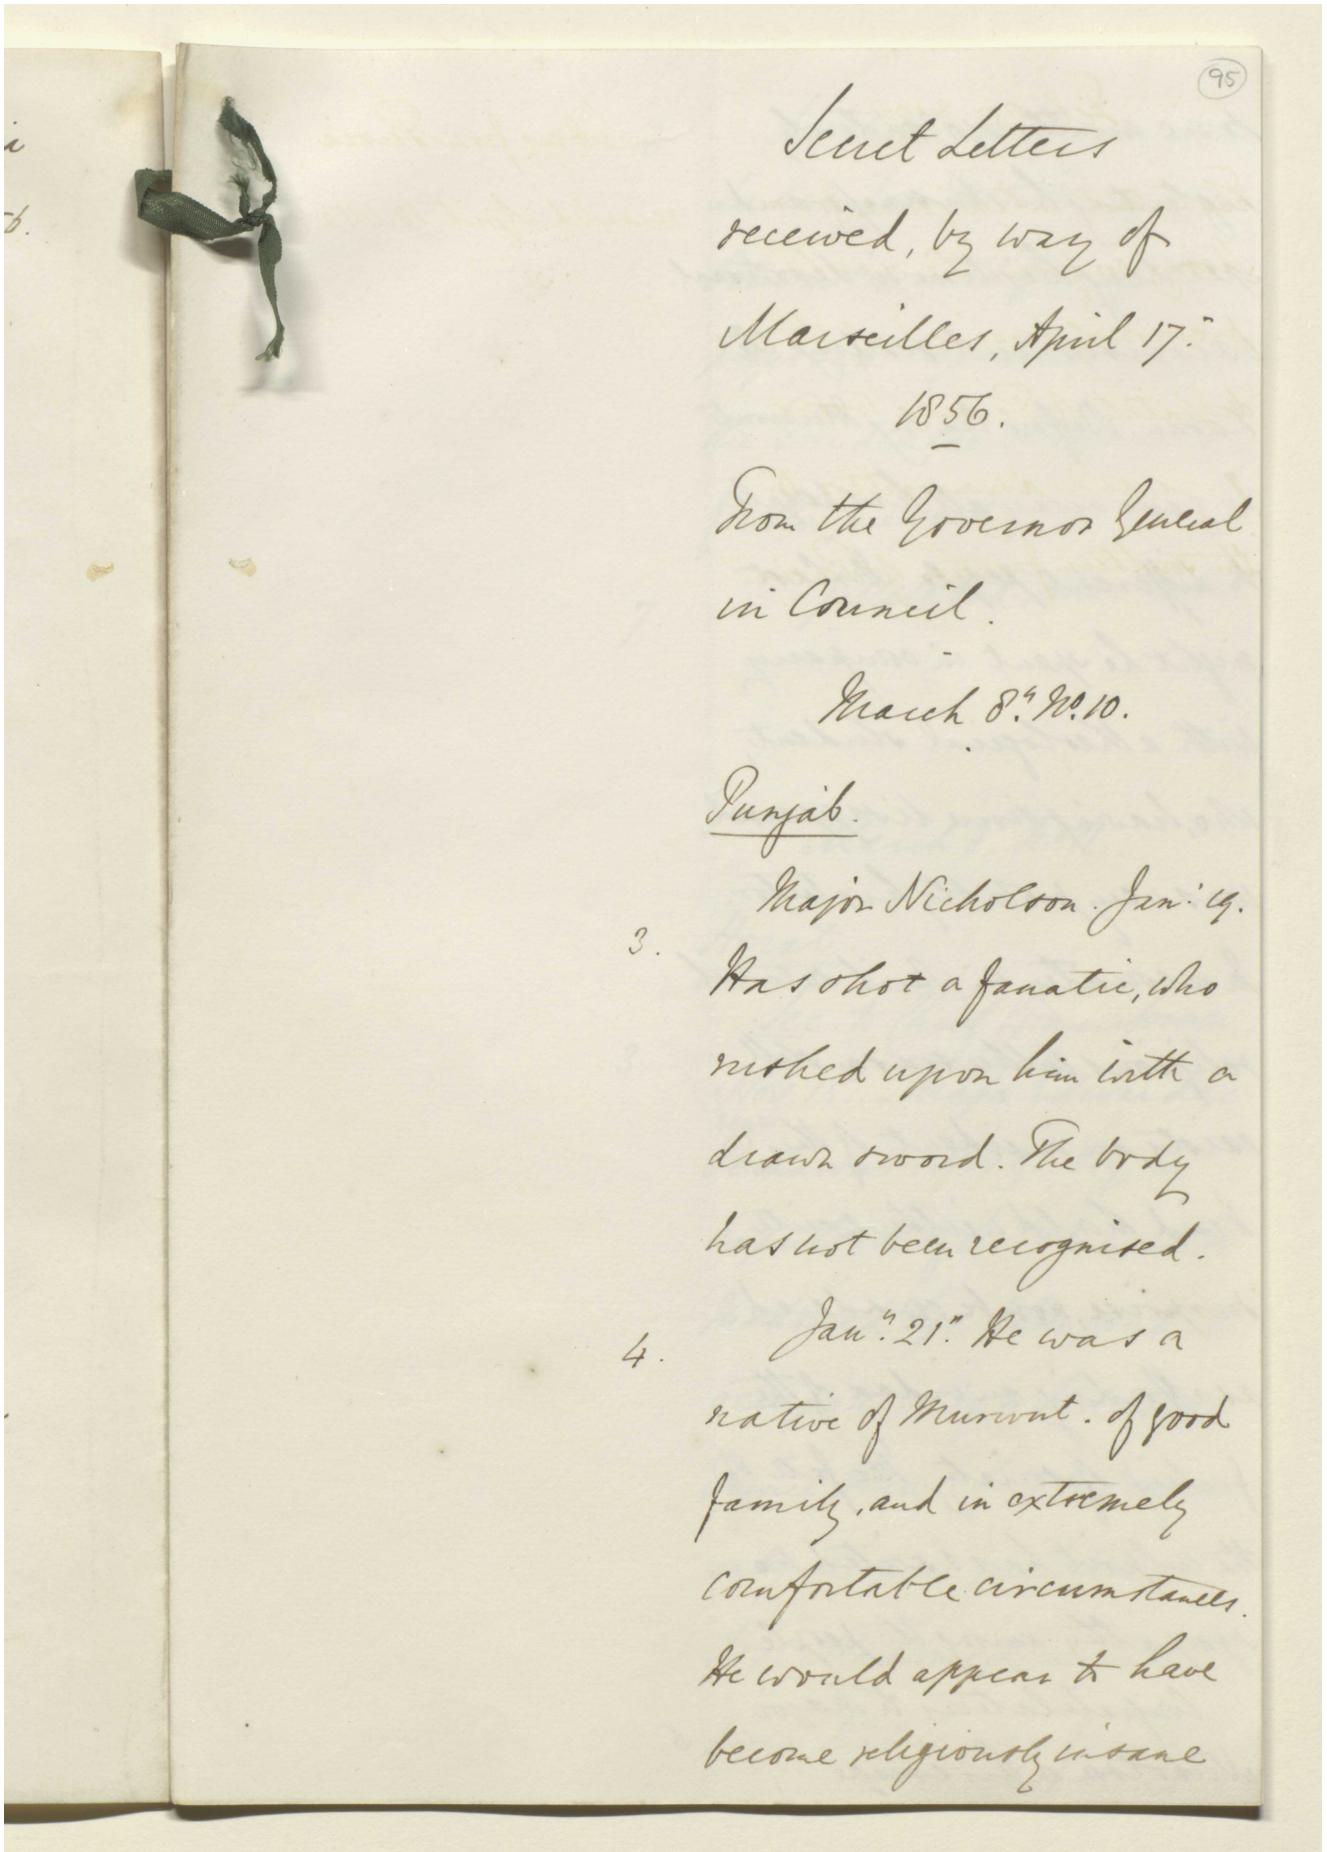 95
Secret Letters
received, by way of
Marseilles, April 17.
1856.
From the Governor General
in Council.
March 8th. No. 10.
Punjab.
Major Nicholson. Jan: 19.
3.
Has shot a fanatic, who
rushed upon him with a
drawn sword. The body
has not been recognised.
4.
Jany. 21". He was a
native of Murwut. of good
family, and in extremely
comfortable circumstances.
He would appear to have
become religiously insane